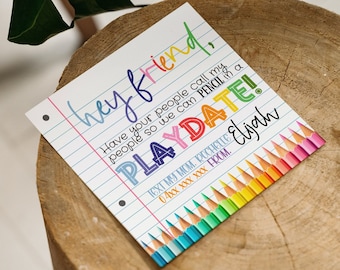 hey friend,
Have your people call my
people so we can PENCIL in a
PLAYDATE!
TEXT MY MOM, ROCHELLE:
04xx xxx xxx
FROM,
Elijah